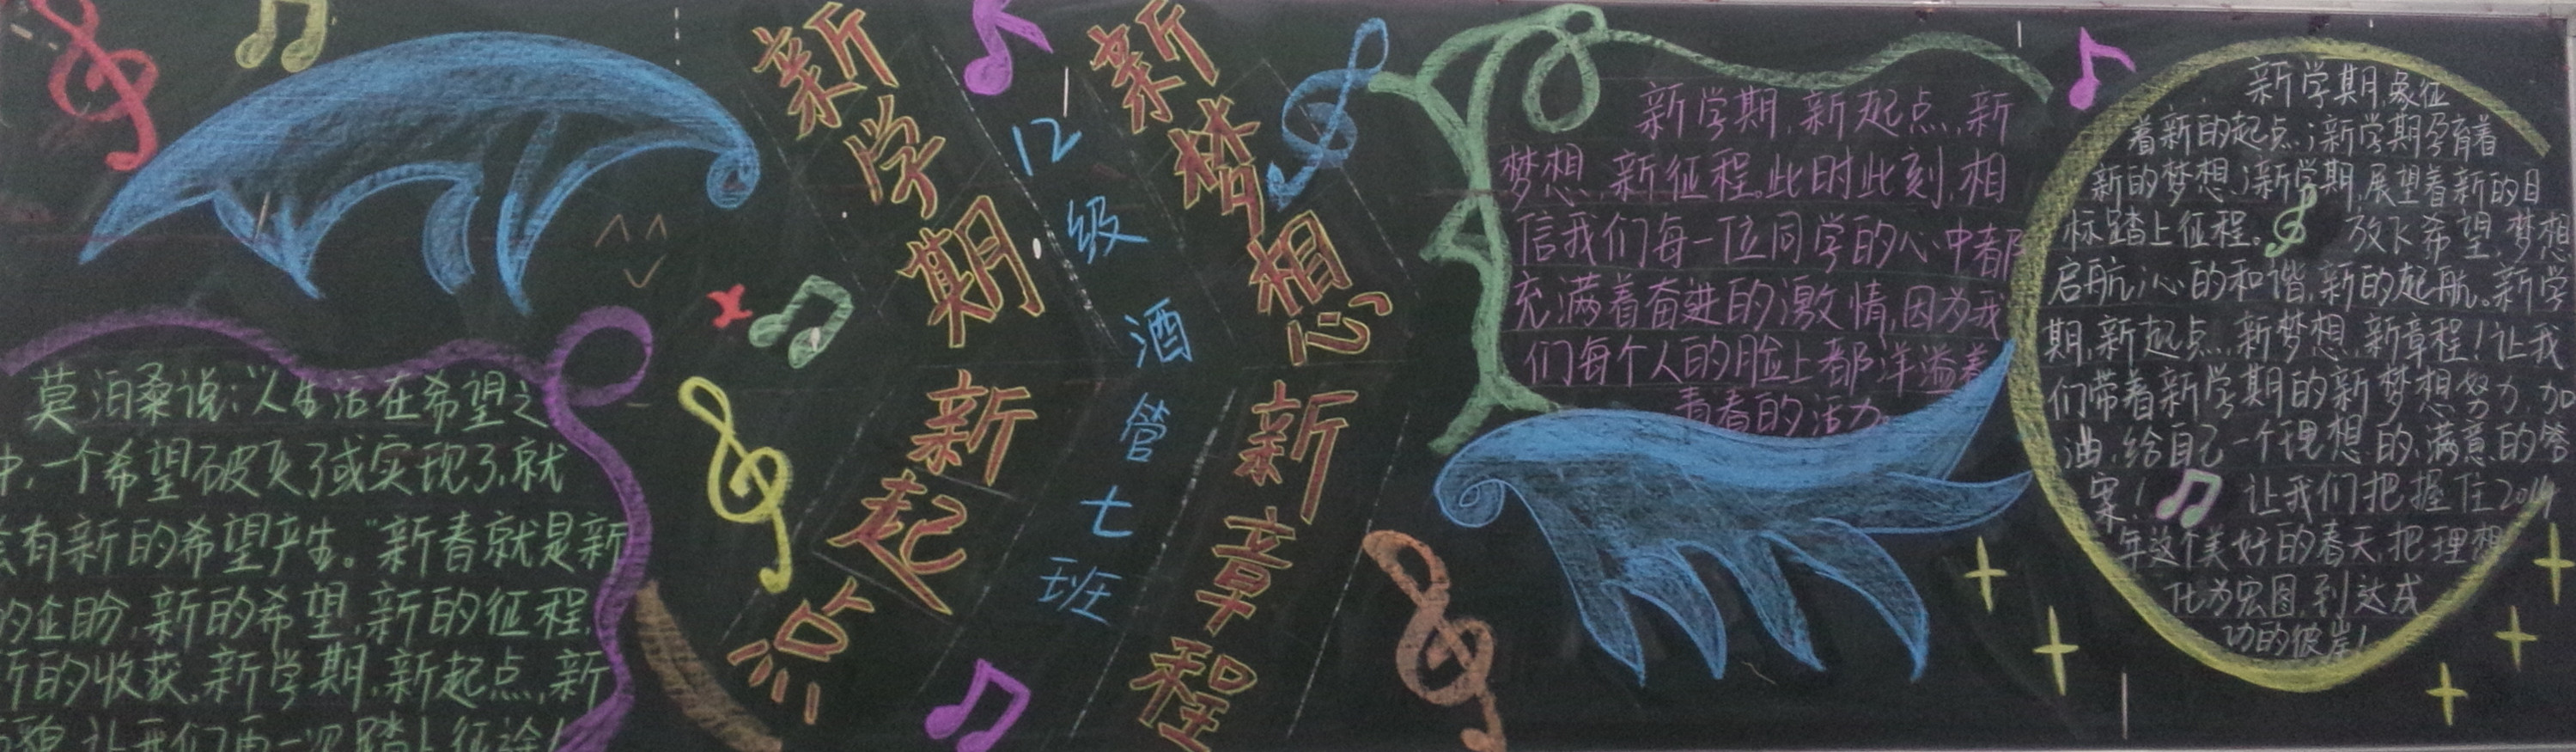 莫泊桑说:"人生活在希望之
中,一个希望破灭了或实现了,就
会有新的希望产生。"新春就是新
的企盼,新的希望,新的征程,
新的收获,新学期,新起点,新
让我们再一次踏上征途!
新学期
新起点
12级
酒管七班
新梦想
新章程
新学期,新起点,新
梦想,新征程。此时此刻,相
信我们每一位同学的心中都
充满着奋进的激情,因为我
们每个人的脸上都洋溢着
青春的活力。
新学期,象征
着新的起点;新学期孕育着
新的梦想;新学期,展望着新的目
标踏上征程。放飞希望,梦想
启航;心的和谐,新的起航。新学
期,新起点,新梦想,新章程!让我
们带着新学期的新梦想努力,加
油,给自己一个理想的,满意的答
案!让我们把握住2014
年这个美好的春天,把理想
化为宏图,到达成
功的彼岸!